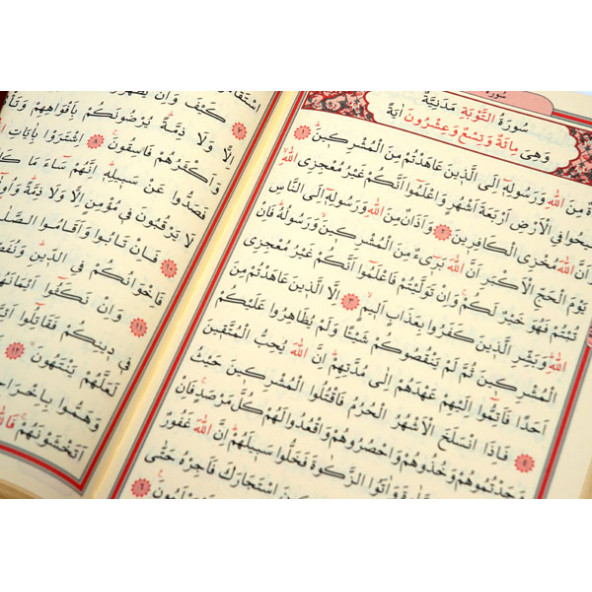 سُورَةُ
سُورَةُ التَّوْبَةِ مَدَنِيَّةٌ
وَهِىَ مِائَةٌ وَتِسْعٌ وَعِشْرُونَ اٰيَةً
ةٌ مِنَ اللّٰهِ وَرَسُولِهٖ اِلَى الَّذٖينَ عَاهَدْتُمْ مِنَ الْمُشْرِكٖينَ ١
يحُوا فِى الْاَرْضِ اَرْبَعَةَ اَشْهُرٍ وَاعْلَمُوا اَنَّكُمْ غَيْرُ مُعْجِزِى اللّٰهِ
اَنَّ اللّٰهَ مُخْزِى الْكَافِرٖينَ ٢ وَاَذَانٌ مِنَ اللّٰهِ وَرَسُولِهٖ اِلَى النَّاسِ
يَوْمَ الْحَجِّ الْاَكْبَرِ اَنَّ اللّٰهَ بَرٖٓىءٌ مِنَ الْمُشْرِكٖينَ وَرَسُولُهُ فَاِنْ
تُبْتُمْ فَهُوَ خَيْرٌ لَكُمْ وَاِنْ تَوَلَّيْتُمْ فَاعْلَمُوا اَنَّكُمْ غَيْرُ مُعْجِزِى
اللّٰهِ وَبَشِّرِ الَّذٖينَ كَفَرُوا بِعَذَابٍ اَلٖيمٍ ٣ اِلَّا الَّذٖينَ عَاهَدْتُمْ مِنَ
الْمُشْرِكٖينَ ثُمَّ لَمْ يَنْقُصُوكُمْ شَيْئًا وَلَمْ يُظَاهِرُوا عَلَيْكُمْ
اَحَدًا فَاَتِمُّوا اِلَيْهِمْ عَهْدَهُمْ اِلٰى مُدَّتِهِمْ اِنَّ اللّٰهَ يُحِبُّ الْمُتَّقٖينَ
٤ فَاِذَا انْسَلَخَ الْاَشْهُرُ الْحُرُمُ فَاقْتُلُوا الْمُشْرِكٖينَ حَيْثُ
وَجَدْتُمُوهُمْ وَخُذُوهُمْ وَاحْصُرُوهُمْ وَاقْعُدُوا لَهُمْ كُلَّ مَرْصَدٍ فَاِنْ
وَاٰتَوُا الزَّكٰوةَ فَخَلُّوا سَبٖيلَهُمْ اِنَّ اللّٰهَ غَفُورٌ
اسْتَجَارَكَ فَاَجِرْهُ حَتّٰى
كَيْفَ وَاِنْ يَظْهَرُوا
اِلًّا وَلَا ذِمَّةً يُرْضُونَكُمْ بِاَفْوَاهِهِمْ وَتَاْ
وَاَكْثَرُهُمْ فَاسِقُونَ ٨ اِشْتَرَوْا بِاٰيَاتِ
فَصَدُّوا عَنْ سَبٖيلِهٖ اِنَّهُمْ سَٓاءَ مَا كَا
لَا يَرْقُبُونَ فٖى مُؤْمِنٍ اِلًّا وَلَا ذِمَّةً وَاُو
١٠ فَاِنْ تَابُوا وَاَقَامُوا الصَّلٰ
فَاِخْوَانُكُمْ فِى الدّٖينِ وَنُفَصِّ
١١ وَاِنْ نَكَثُٓوا اَيْمَانَهُ
فٖى دٖينِكُمْ فَقَاتِلُٓوا
لَعَلَّهُمْ يَنْتَهُونَ
وَهَمُّوا بِاِخْرَاجِ
اَتَخْشَوْنَهُمْ